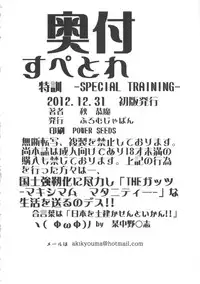 奥付
すぺとれ
特訓 -SPECIAL TRAINING-
2012.12.31 初版発行
著者 秋 恭魔
発行 ふろむじゃぱん
印刷 POWER SEEDS
無断転写、複製を禁止しております。
尚本誌は成人向けであり18才未満の
購入も禁じております。上記の行為
を行った方々は…
国士強靭化に尽力し「THEガッツ
-マキシマム マタニティ──」な
生活を送るのデス!!
合言葉は「日本を土建かせんといかん!!」
ヽ( ΦωΦ)) by 某中野○志
メールは akikyouma@hotmail.com